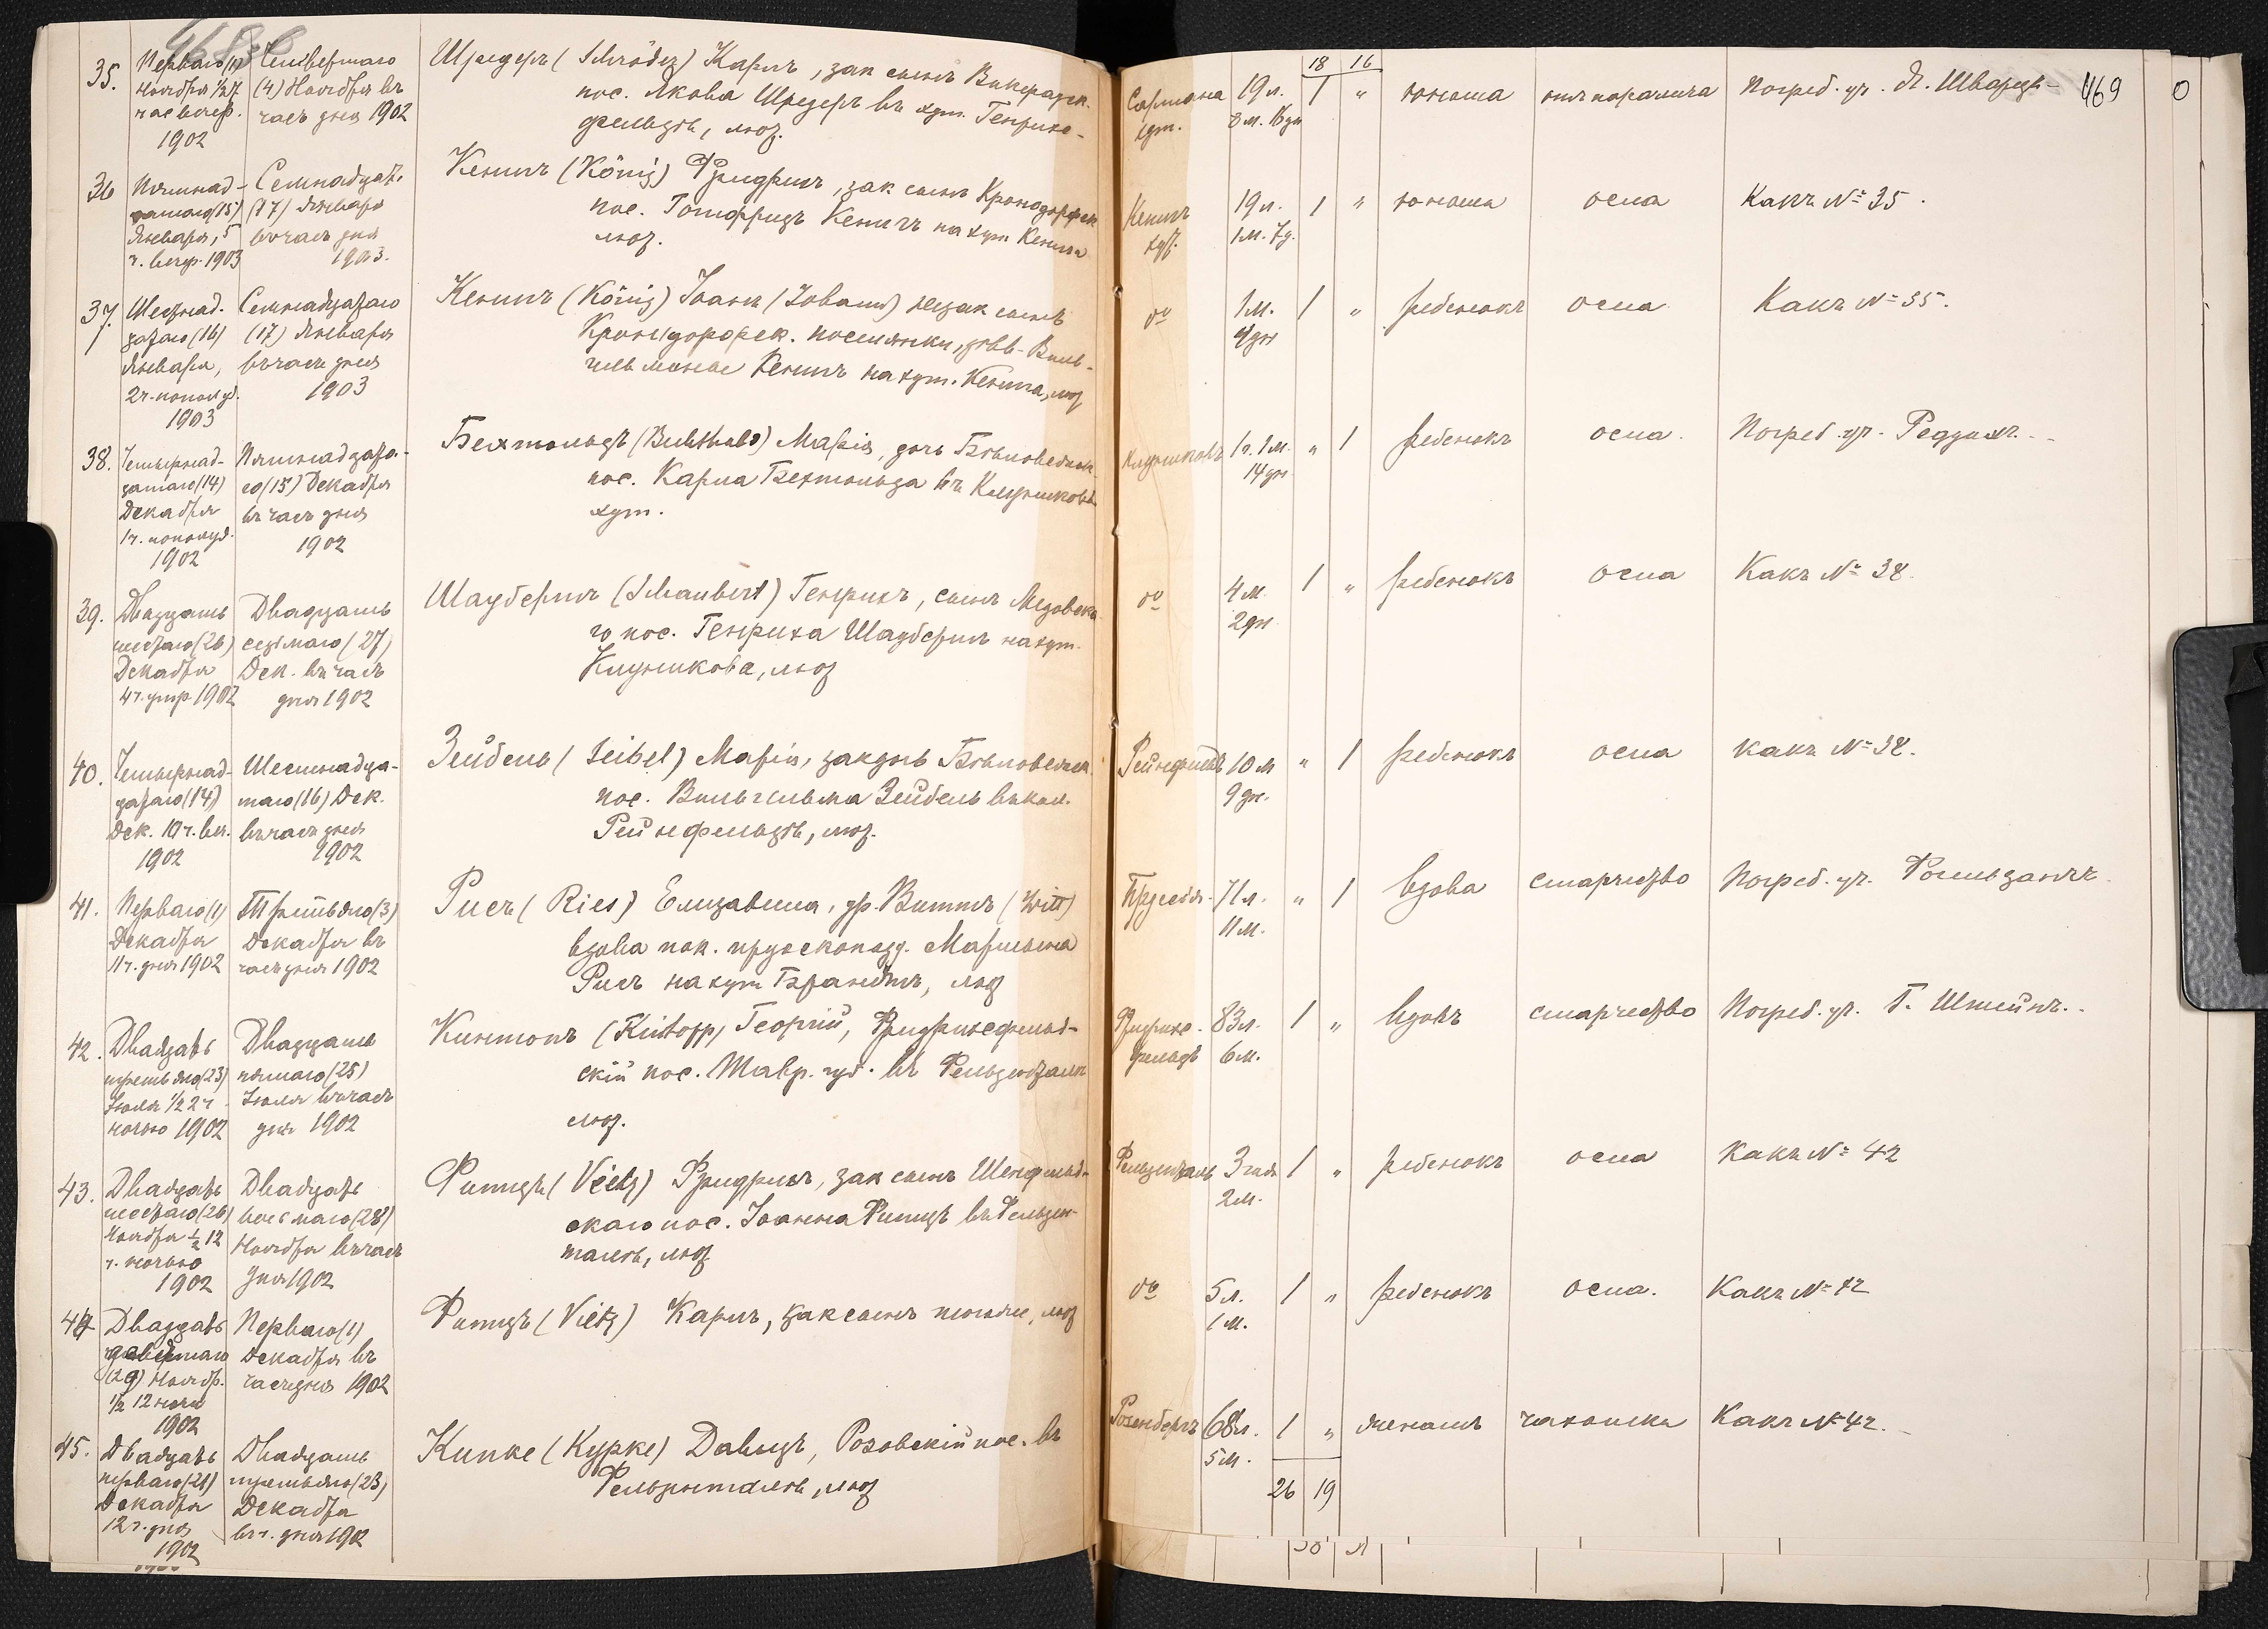 469 0
18 16
35. Перваго (1) Ноября 1/2 7 час вечер. 1902
Четвертаго (4) Ноября въ часъ дня 1902
Шредеръ (Schröder) Карлъ, зак сынъ
пос. Якова Шредеръ въ хут. Генрихс-
фельдѣ, лют.
хут. 19 л. 8 м. 1 " юноша Погреб. уч. Я. Шварцъ-
36 Пятнад-цатаго (15) Января, 5 ч. вечер. 1903
Семнадцат. (17) Января въ часъ дня 1903.
Кенигъ (König) Фридрихъ, зак сынъ Кронсдорфск
пос. Готфридъ Кенигъ на хут Кенига
лют.
Кенигъ хут. 19 л. 1 м. 7 д. 1 " юноша оспа Какъ № 35.
37. Шестнад-цатаго (16) Января, 2 ч. пополуд. 1903
Семнадцатаго (17) Января въ часъ дня 1903
Кенигъ (König) Іоанъ (Johann) незак сынъ
Кронсдорфск. поселянки, дѣв. Виль-
гельмине Кенигъ на хут. Кенига, лют
do 1 м. 4 дн 1 " ребенокъ оспа Какъ № 35.
38. Четырнад-цатаго (14) Декабря 1 ч. пополуд. 1902
Пятнадцата-го (15) Декабря въ часъ дня 1902
Бехтольдъ (Bechthold) Марія, дочь
пос. Карла Бехтольда въ
хут.
1 г. 1 м. 14 дн. " 1 ребенокъ оспа. Погреб. уч.
39. Двадцать шестаго (26) Декабря 4 ч. утр 1902
Двадцать седьмаго (27) Дек. въ часъ дня 1902
Шаубертъ (Schaubert) Генрихъ, сынъ
го пос. Генриха Шаубертъ на хут.
лют
do 4 м. 2 дн 1 " ребенокъ оспа Какъ № 38.
40. Четырнад-цатаго (14) Дек. 10 ч. веч. 1902
Шестнадца-таго (16) Дек. въ часъ дня 1902
Зейбель (Seibel) Марія, зак дочь
пос. Вильгельма Зейбель въ кол.
Рейнфельдѣ, лют.
Рейнфельдъ 10 м 9 дн. " 1 ребенокъ оспа какъ № 38.
41. Перваго (1) Декабря 11 ч. дня 1902
Третьяго (3) Декабря въ часъ дня 1902
Рисъ (Ries) Елизавета, ур. Виттъ (Witt)
вдова пок. прусскопод. Мартына
Рисъ на хут Брандтъ, лют
71 л. 11 м. " 1 вдова старчество Погреб. уч.
42. Двадцать третьяго (23) Іюля 1/2 2 ч ночью 1902
Двадцать пятаго (25) Іюля въ часъ дня 1902
Кинтопъ (Kintopp) Георгій, Фридрихсфельд-
скій пос. Тавр. губ. въ Фельзенталѣ
лют.
Фридрихс-фельдъ 83 л. 6 м. 1 " вдовъ старчество Погреб. уч. Г. Штейнъ.
43. Двадцать шестаго (26) Ноября 1/2 12 ч. ночью 1902
Двадцать восьмаго (28) Ноября въ часъ дня 1902
Фитцъ (Vietz) Фридрихъ, зак сынъ Шенфельд-
скаго пос. Іоанна Фитцъ въ Фельзен-
талѣ, лют
Фельзенталь 3 года 2 м. 1 " ребенокъ оспа Какъ № 42
44 Двадцать девятаго (29) Ноябр. 1/2 12 ночи 1902
Перваго (1) Декабря въ часъ дня 1902
Фитцъ (Vietz) Карлъ, зак сынъ тогоже, лют
do 5 л. 1 м. 1 " ребенокъ оспа. Какъ № 42
45. Двадцать перваго (21) Декабря 12 ч. дня 1902
Двадцать третьяго (23) Декабря въ ч. дня 1902
Кипке Давидъ, Розовскій пос. въ
Фельзенталѣ, лют
Розенбергъ 68 л. 5 м. 1 " женатъ чахотка Какъ № 42.
26 19